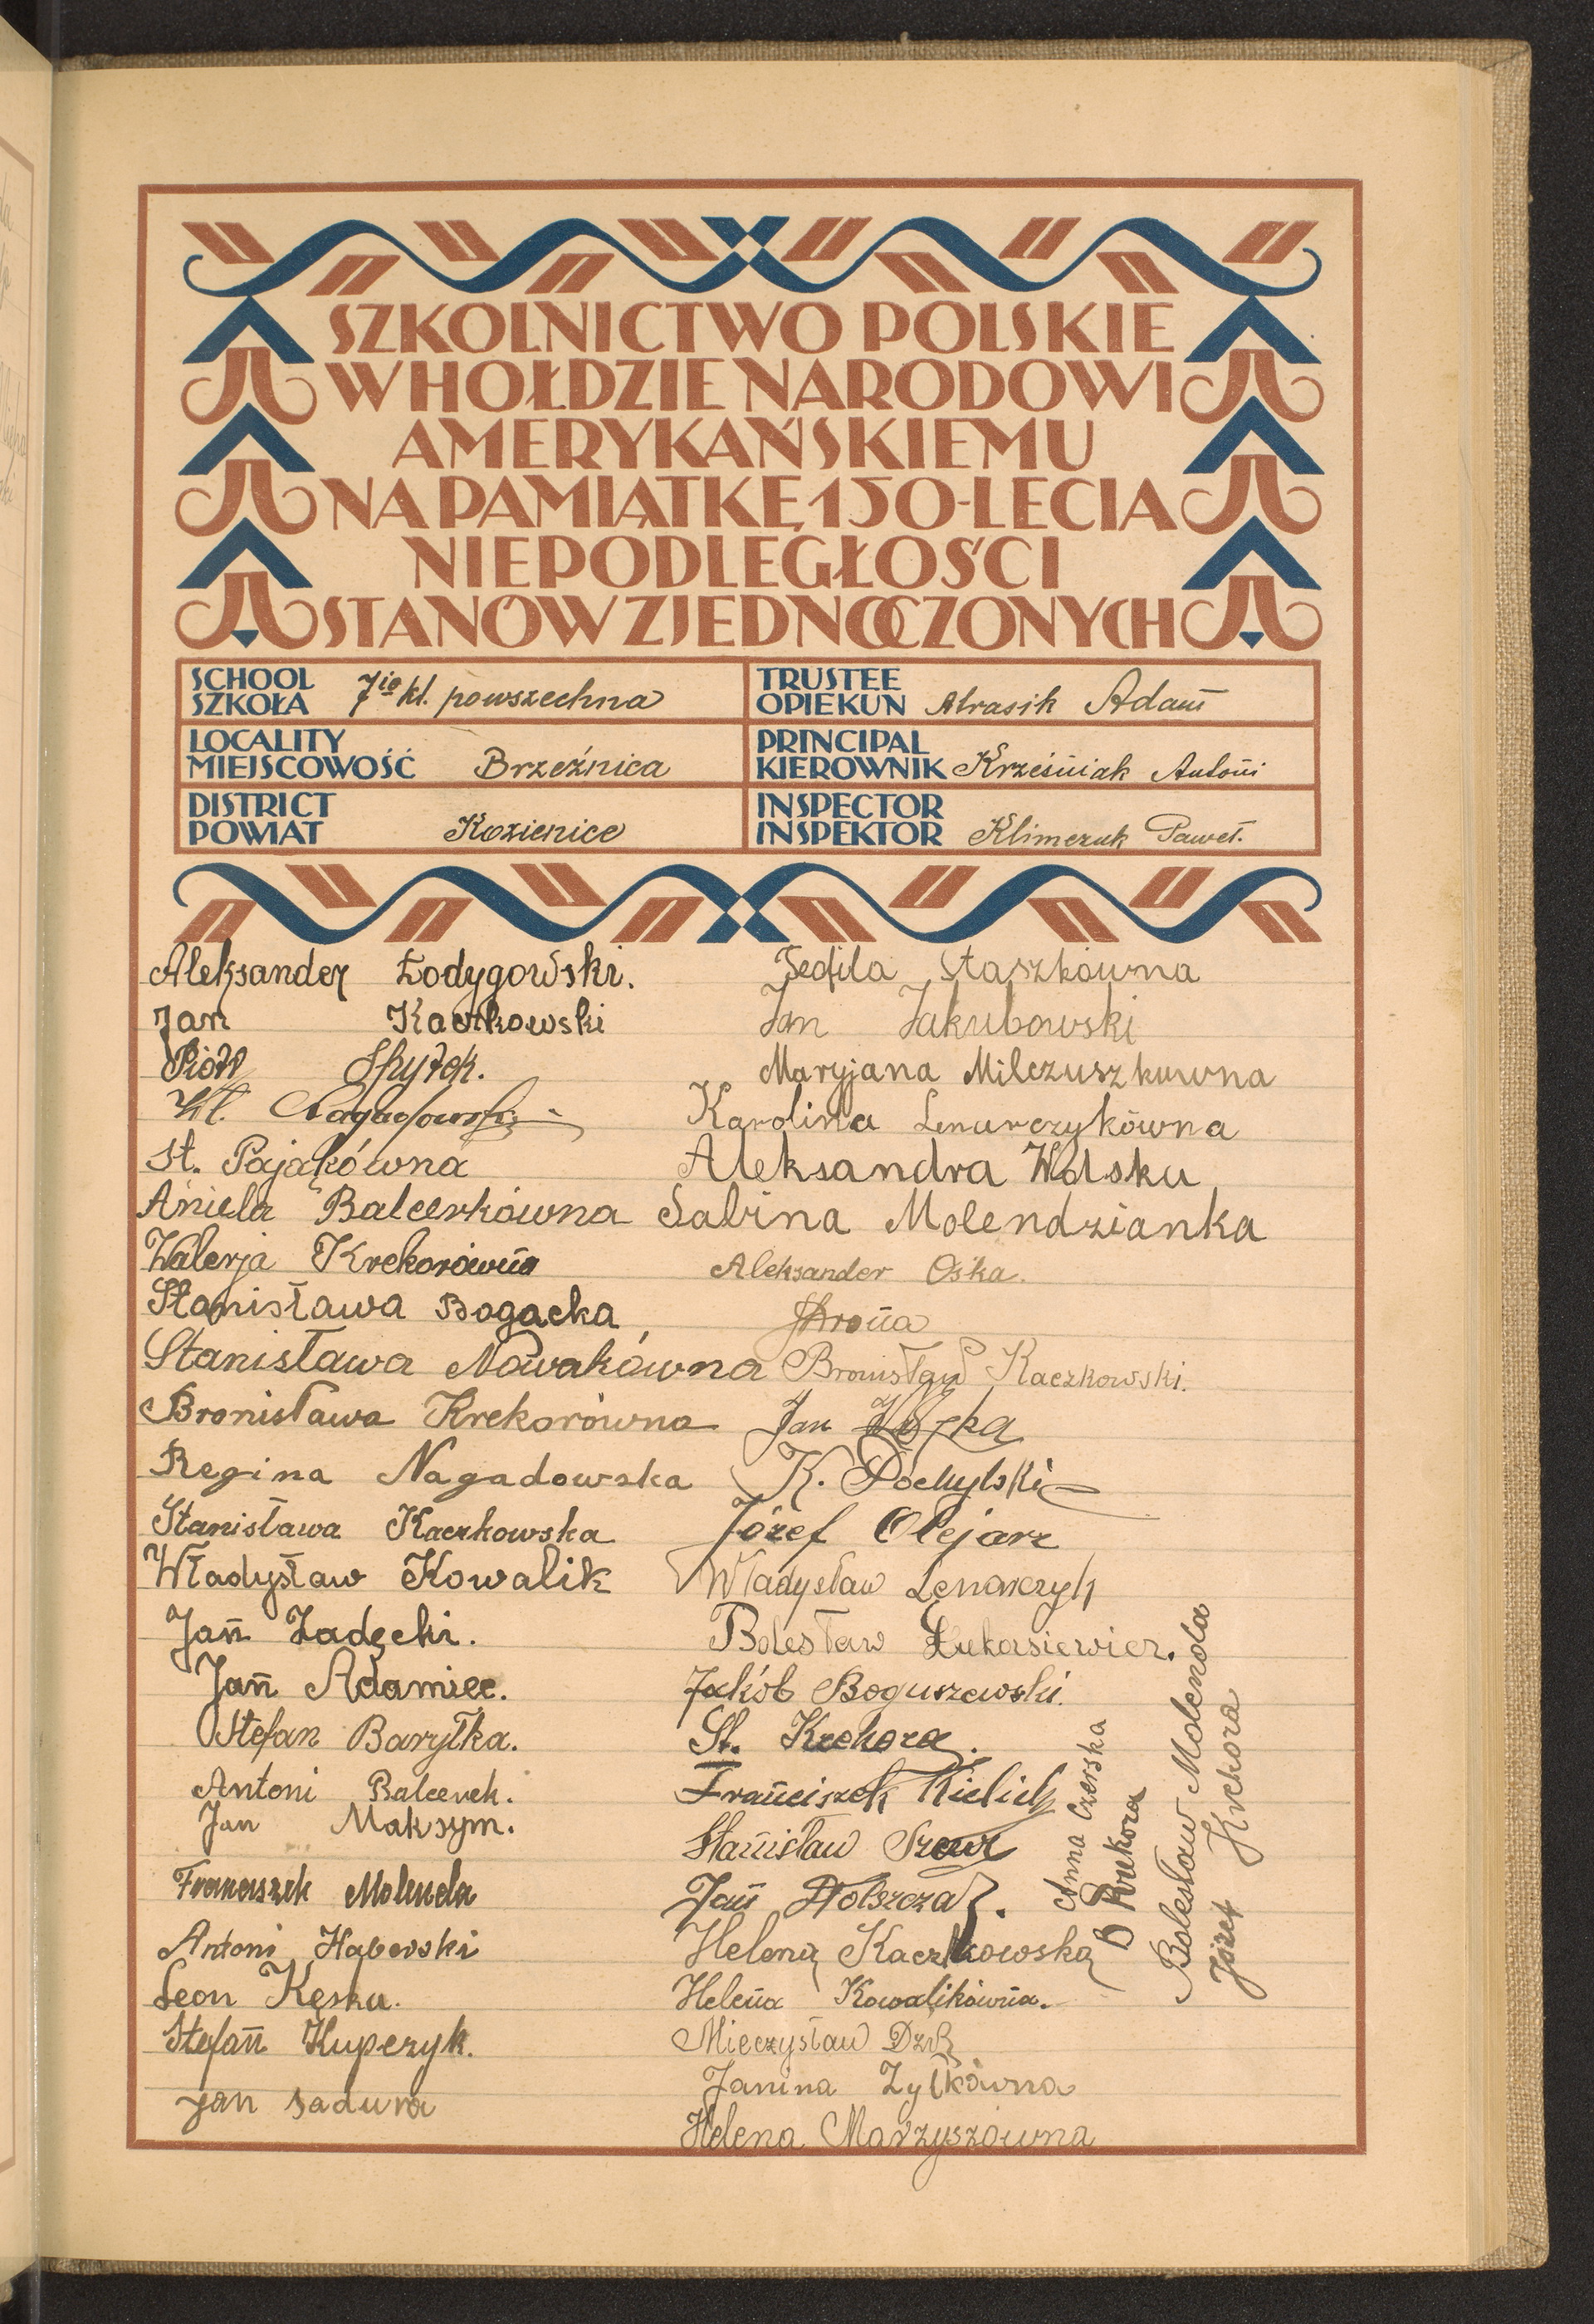 SZKOLNICTWO POLSKIE
W HOŁDZIE NARODOWI
AMERYKAŃSKIEMU
NA PAMIĄTKĘ 150-LECIA
NIEPODLEGŁOŚCI
STANÓW ZJEDNOCZONYCH
SCHOOL
SZKOŁA 7io kl. powszechna
TRUSTEE
OPIEKUN Atrasik Adam
LOCALITY
MIEJSCOWOŚĆ Brzeźnica
PRINCIPAL
KIEROWNIK Krześniak Antoni
DISTRICT
POWIAT Kozienice
INSPECTOR
INSPEKTOR Klimczuk Paweł.
Aleksander Łodygowski.
Jan Kaczkowski
Piotr Spytek.
Wł. Nagadowski
St. Pająkówna
Aniela Balcerkówna
Walerja Krekorówna
Stanisława Bogacka
Stanisława Nowakówna
Bronisława Krekorówna
Regina Nagadowska
Stanisława Kaczkowska
Władysław Kowalik
Jan Zadęcki.
Jan Adamiec.
Stefan Baryłka.
Antoni Balcerek.
Jan Maksym.
Franciszek Molenda
Antoni Haberski
Leon Kęska.
Stefan Kupczyk.
Jan Sadura
Staszkówna
Jan Jakubowski
Maryjana Milczuszkówna
Karolina Lenarczykówna
Aleksandra Wolska
Sabina Molendzianka
Aleksander Ośka.
Bronisław Kaczkowski.
Jan
K. Pochylski
Józef Olejarz
Władysław Lenarczyk
Bolesław Łukasiewicz.
Jakób Boguszewski.
St. Krekora.
Franciszek Kielich
Stanisław Szewc
Jan
Helena Kaczkowska
Helena Kowalikówna.
Mieczysław
Janina Żyłkówna
Helena Marzyszówna
Anna Czerska
B Krekora
Bolesław Molenda
Józef Krekora